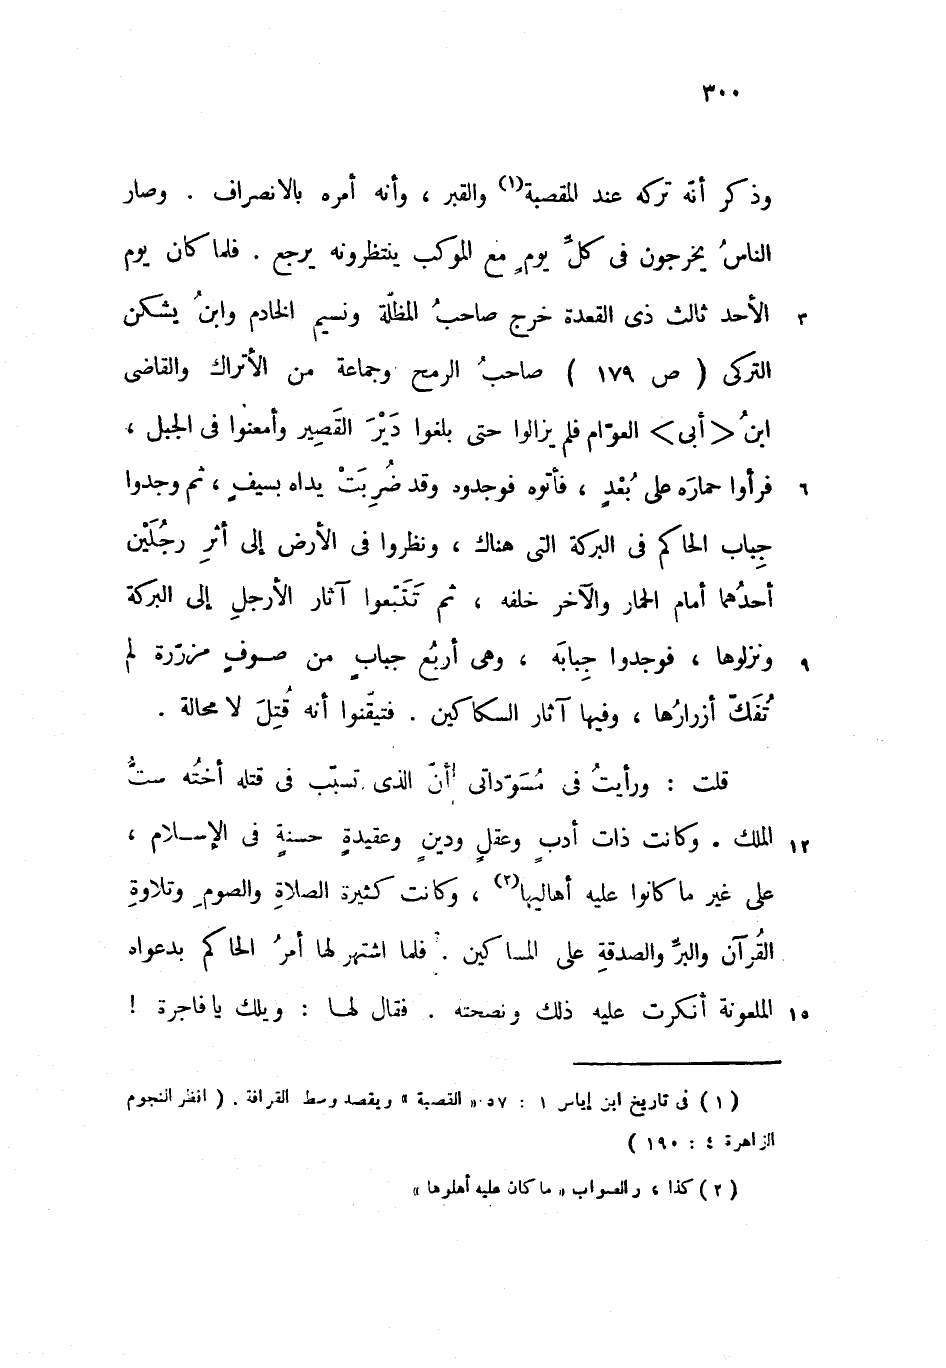 ٣٠٠
وذكر أنّه تركه عند المقصبة(١) والقبر ، وأنه أمره بالانصراف . وصار
الناسُ يخرجون فى كلِّ يومٍ مع الموكب ينتظرونه يرجع . فلما كان يوم
٣ الأحد ثالث ذى القعدة خرج صاحبُ المظلّة ونسيم الخادم وابنُ يشكن
التركى ( ص ١٧٩ ) صاحبُ الرمح وجماعة من الأتراك والقاضى
ابنُ <أبى> العوّام فلم يزالوا حتى بلغوا دَيْرَ القَصِير وأمعنوا فى الجبل ،
٦ فرأوا حمارَه على بُعْدٍ ، فأتوه فوجدوه وقد ضُرِبَتْ يداه بسيفٍ ، ثم وجدوا
جِباب الحاكم فى البركة التى هناك ، ونظروا فى الأرض إلى أثرِ رجُلَيْن
أحدُهما أمام الحمار والآخر خلفه ، ثم تَتَبّعوا آثار الأرجلِ إلى البركة
٩ ونزلوها ، فوجدوا جِبابَه ، وهى أربُع جبابٍ من صوفٍ مزرّرة لم
تُفَكّ أزرارُها ، وفيها آثار السكاكين . فتيقّنوا أنه قُتِلَ لا محالة .
قلت : ورأيتُ فى مُسَوّداتى أنّ الذى تسبّب فى قتله أختُه ستُّ
١٢ الملك . وكانت ذات أدبٍ وعقلٍ ودينٍ وعقيدةٍ حسنةٍ فى الإسلام ،
على غير ما كانوا عليه أهاليها(٢) ، وكانت كثيرة الصلاةِ والصومِ وتلاوةِ
القُرآن والبرِّ والصدقةِ على المساكين . فلما اشتهر لها أمرُ الحاكم بدعواه
١٥ الملعونة أنكرت عليه ذلك ونصحته . فقال لها : ويلك يا فاجرة !
(١) فى تاريخ ابن إياس ١ : ٥٧ « القصبة » ويقصد وسط القرافة . ( انظر النجوم
الزاهرة ٤ : ١٩٠ )
(٢) كذا ، والصواب « ما كان عليه أهلوها »